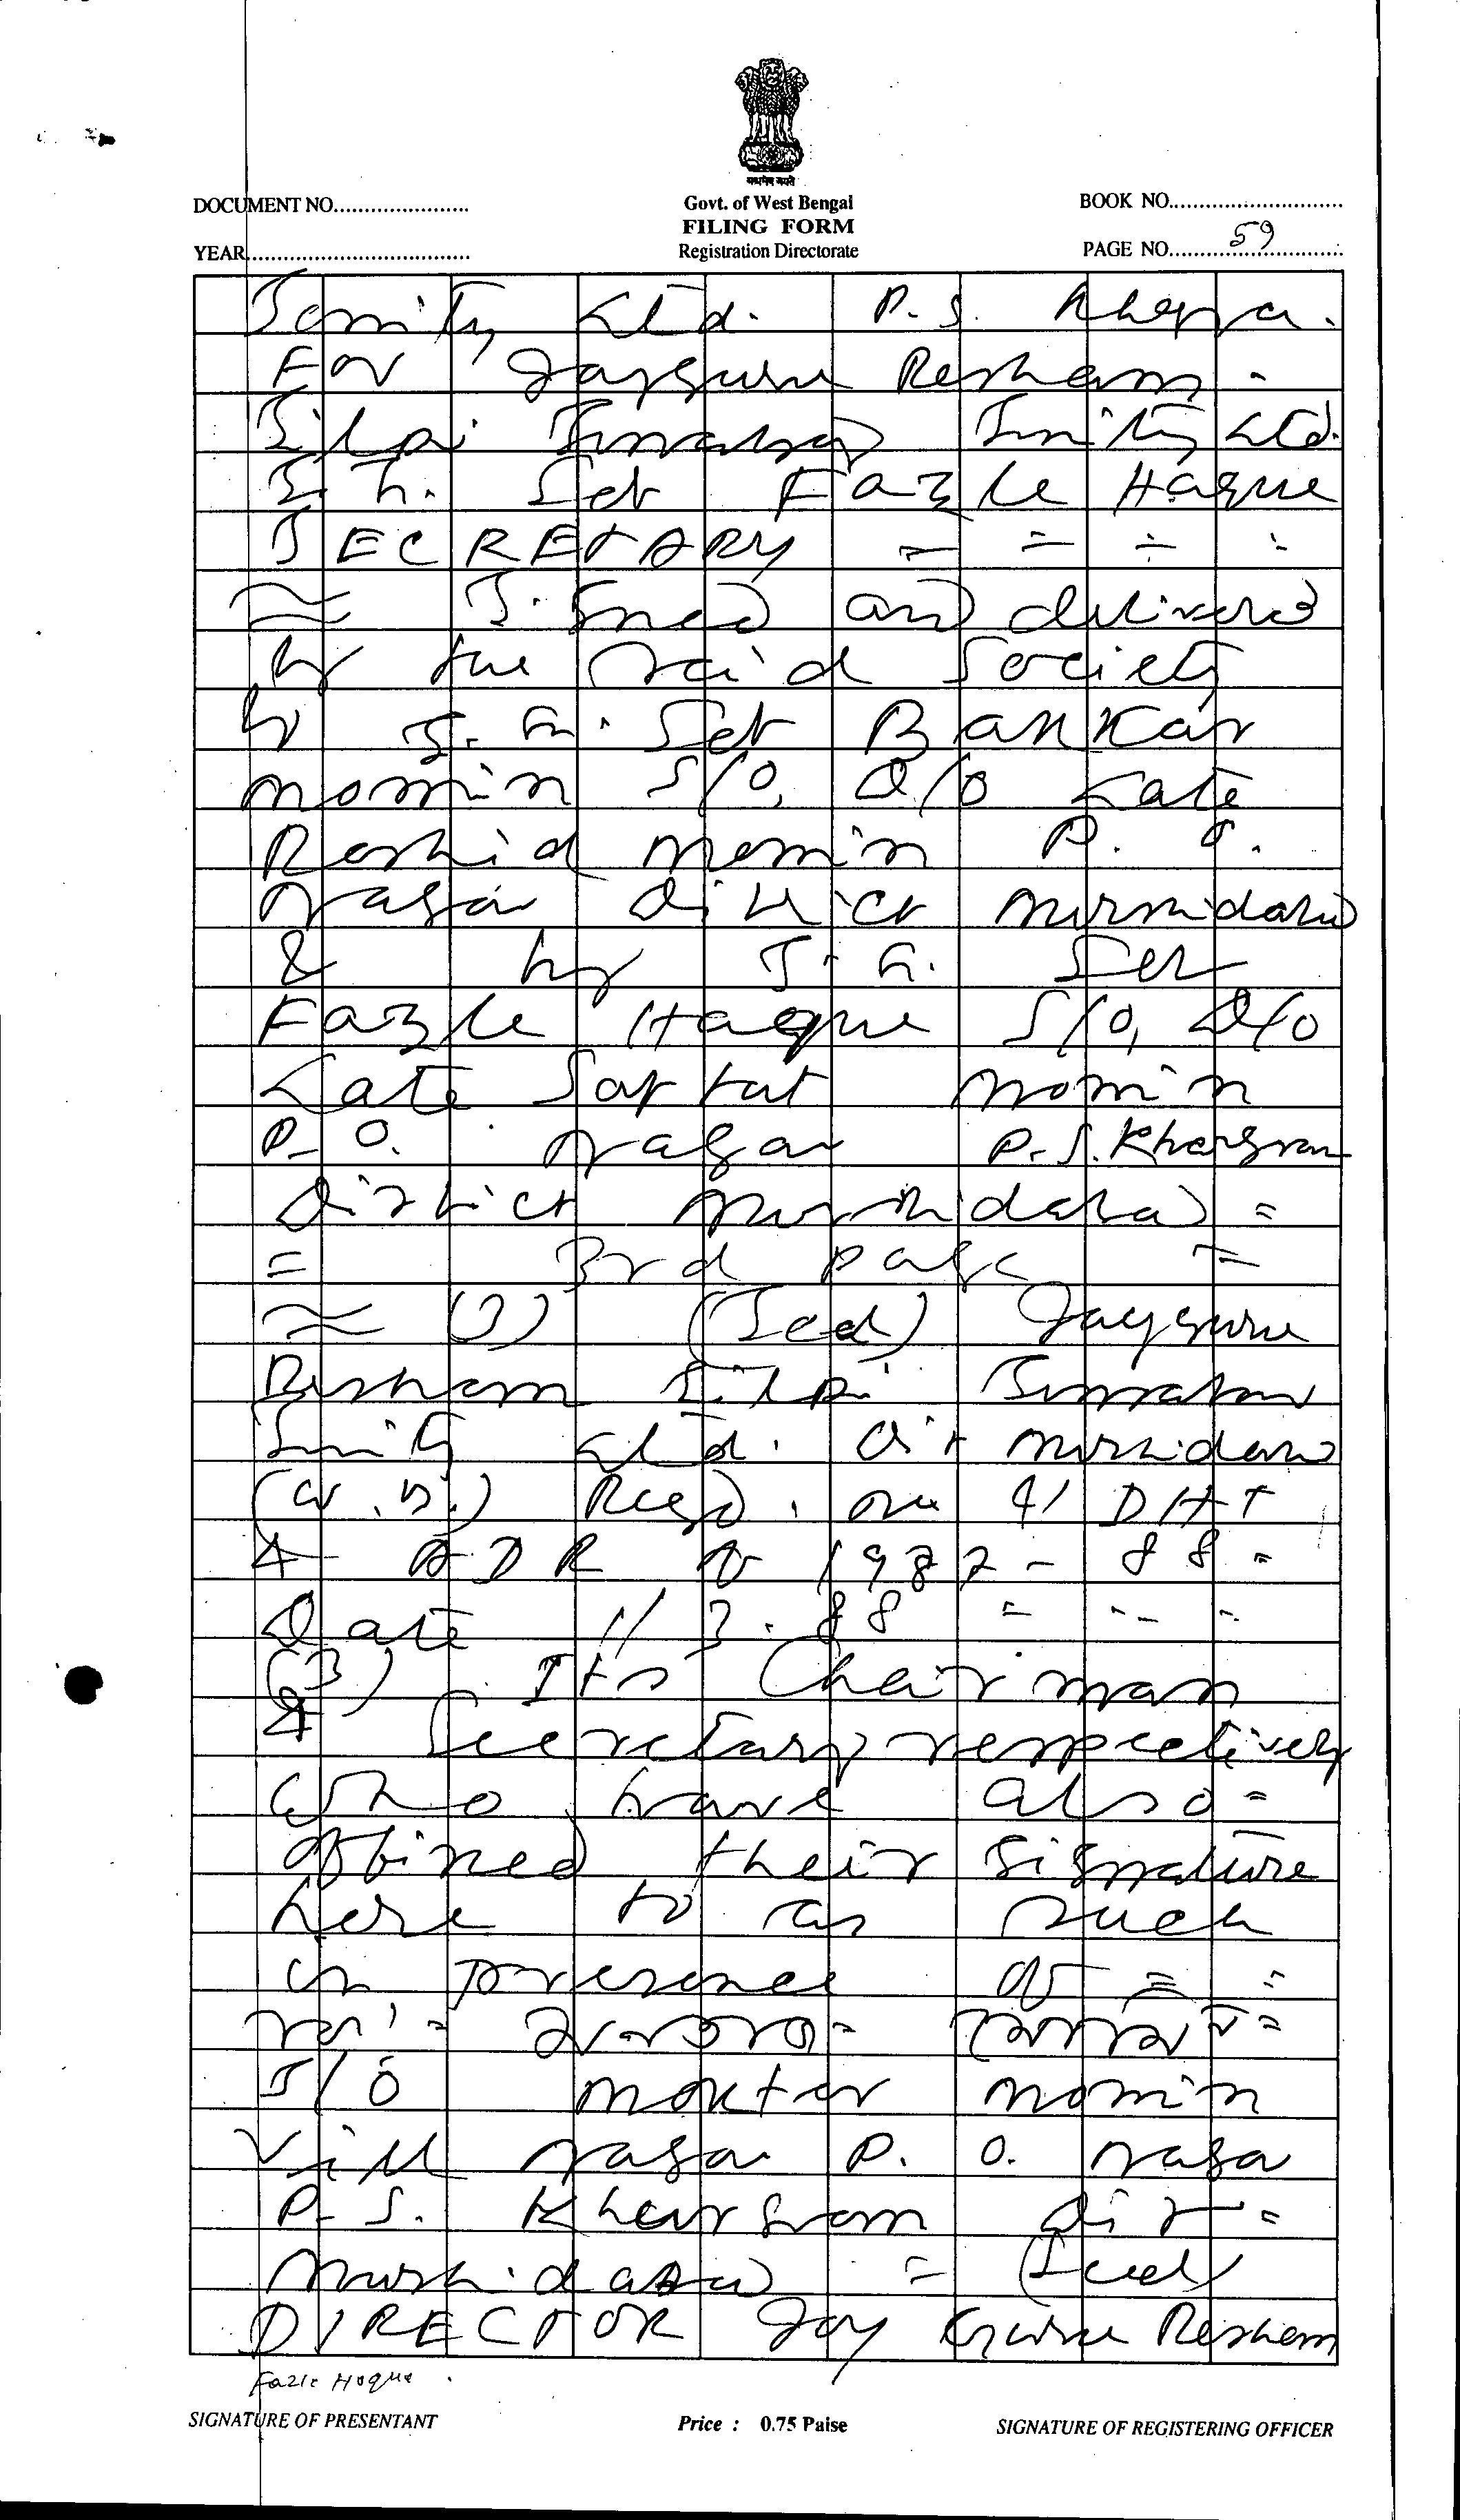 सत्यमेव जयते
Govt. of West Bengal
FILING FORM
Registration Directorate
DOCUMENT NO.
YEAR
BOOK NO.
PAGE NO. 59
Samity Ltd. P. S.
For Jayguru Resham -
Silpi Samabay Samity Ltd.
Sk. Fazle Haque
SECRETARY = = = =
Signed and delivered
by the said Society
by Bankar
Momin S/O, D/O Late
Rashid Momin P. O.
Nagar District Murshidabad
& by
Fazle Haque S/O, D/O
Late Momin
P. O. Nagar P. S. Khargram
District Murshidabad =
= 3rd page =
(3) (Seal) Jayguru
Resham Silpi Samabay
Samity Ltd. Dist Murshidabad
(W.B.) Regd. No 41 DHT
ADR of 1987 - 88 =
Date 11.3.88 = = =
(3) Its Chairman
& Secretary respectively
who have also =
their signature
here to as such
in presence of = =
S/O Moktar Momin
Vill Nagar P. O. Nagar
P. S. Khargram Dist =
Murshidabad = (Seal)
DIRECTOR Joy Guru Resham
Fazle Hoque
SIGNATURE OF PRESENTANT
Price : 0.75 Paise
SIGNATURE OF REGISTERING OFFICER